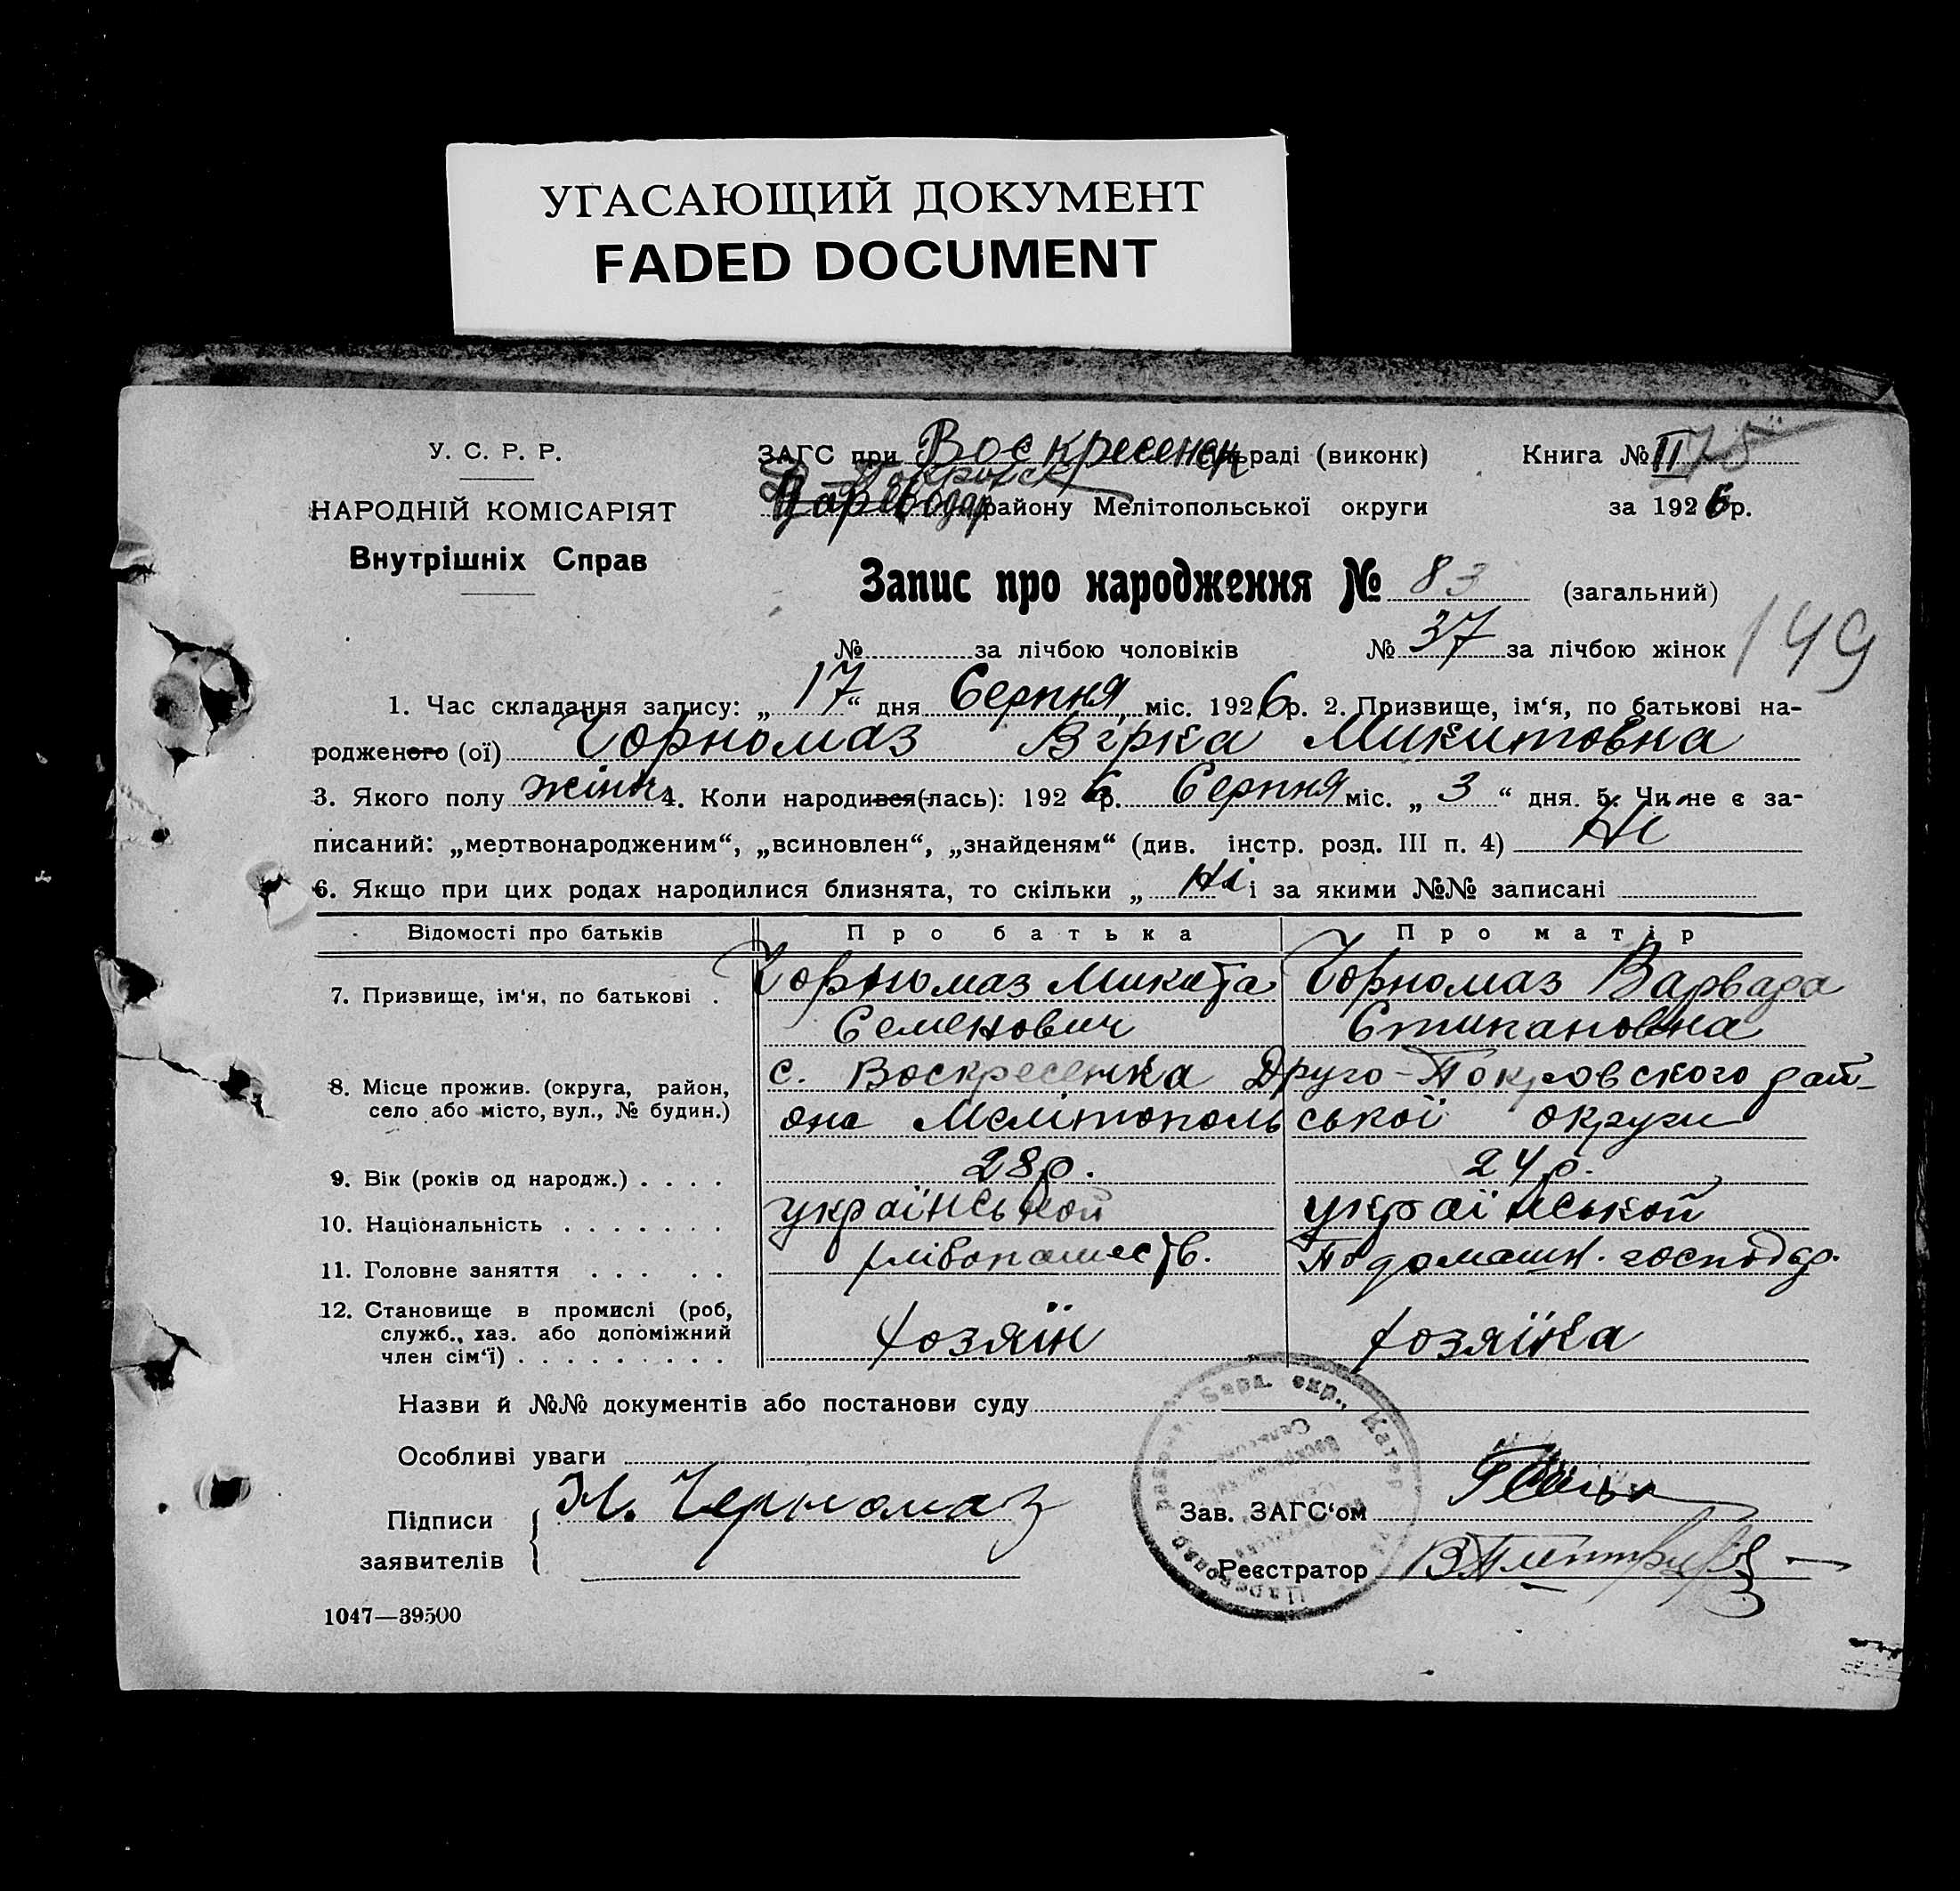 УГАСАЮЩИЙ ДОКУМЕНТ
FADED DOCUMENT
У. С. Р. Р.
НАРОДНІЙ КОМІСАРІЯТ
Внутрішніх Справ
ЗАГС при Воскресенськ раді (виконк) Книга № II 78
Цареводар району Мелітопольської округи за 1926 р.
Запис про народження № 83 (загальний)
№ за лічбою чоловіків № 37 за лічбою жінок 149
1. Час складання запису: „17“ дня Серпня міс. 1926 р. 2. Призвище, ім‘я, по батькові на-
родженого (ої) Чорномаз Вірка Микитовна
3. Якого полу жіноч 4. Коли народився(лась): 1926 р. Серпня міс. „3“ дня. 5. Чи не є за-
писаний: „мертвонародженим“, „всиновлен“, „знайденям“ (див. інстр. розд. III п. 4) Ні
6. Якщо при цих родах народилися близнята, то скільки „ Ні і за якими №№ записані
Відомості про батьків Про батька Про матір
7. Призвище, ім‘я, по батькові . Чорномаз Микита Чорномаз Варвара
Семенович Стипановна
8. Місце прожив. (округа, район, с. Воскресенка Друго-Покровского рай-
село або місто, вул., № будин.) она Мелітопольської округи
9. Вік (років од народж.) . . . . 28 р. 24 р.
10. Національність . . . . . . . української української
11. Головне заняття . . . . . хлібопашеств. По домашн. господар.
12. Становище в промислі (роб,
служб., хаз. або допоміжний хозяїн хозяїка
член сім‘ї) . . . . . . . . .
Назви й №№ документів або постанови суду
Особливі уваги
Підписи Н. Черномаз Зав. ЗАГС‘ом
заявителів Реєстратор
1047—39500